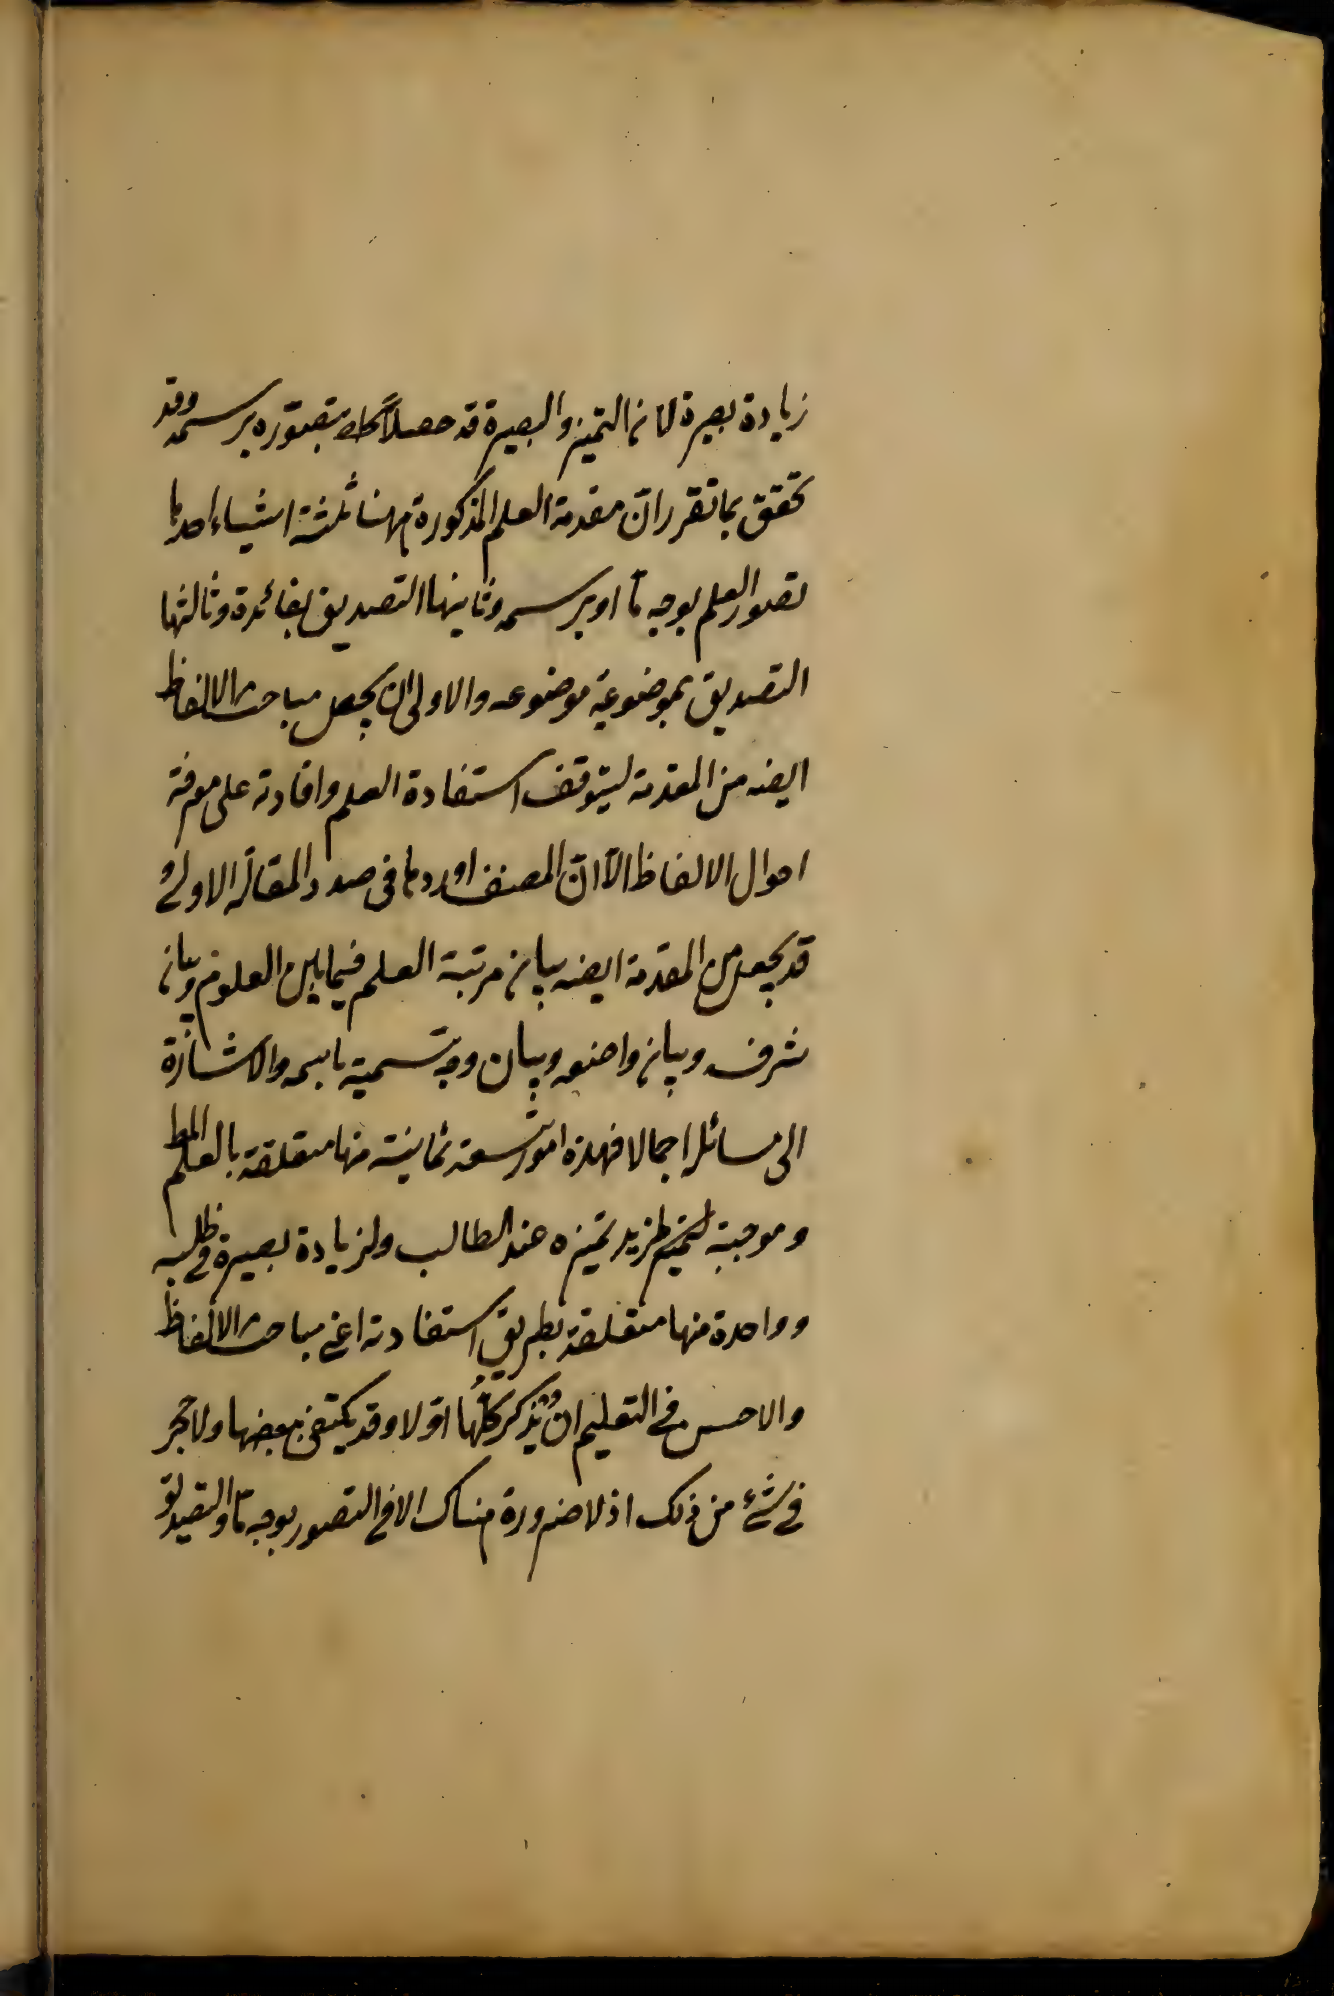 زيادة بصيرة لان التميز والبصيرة قد حصلا بتصوره برسمه وقد
تحقق بما تقرر ان مقدمة العلم المذكورة ههنا ثلثة اشياء احدها
تصور العلم بوجه ما او برسمه وثانيها التصديق بفائدة وثالثها
التصديق بموضوعية موضوعه والاولى ان يجعل مباحث الالفاظ
ايضه من المقدمة ليتوقف استفادة العلم وافادته على معرفة
احوال الالفاظ الا ان المصنف اوردها فى صدد المقالة الاولى و
قد يجعل من المقدمة ايضه بيان مرتبة العلم فيما بين العلوم وبيان
شرفه وبيان واضعه وبيان وجه تسميته باسمه والاشارة
الى مسائله اجمالا فهذه امور تسعة ثمانية منها متعلقة بالعلم المط
وموجبة لمزيد تميزه عند الطالب ولزيادة بصيرة في طلبه
وواحدة منها متعلقة بطريق استفادته اعني مباحث الالفاظ
والاحسن في التعليم ان يذكر كلها اولا وقد يكتفى ببعضها ولا حجر
في شئ من ذلك اذ لا ضرورة هناك الا في التصور بوجه ما والتصديق